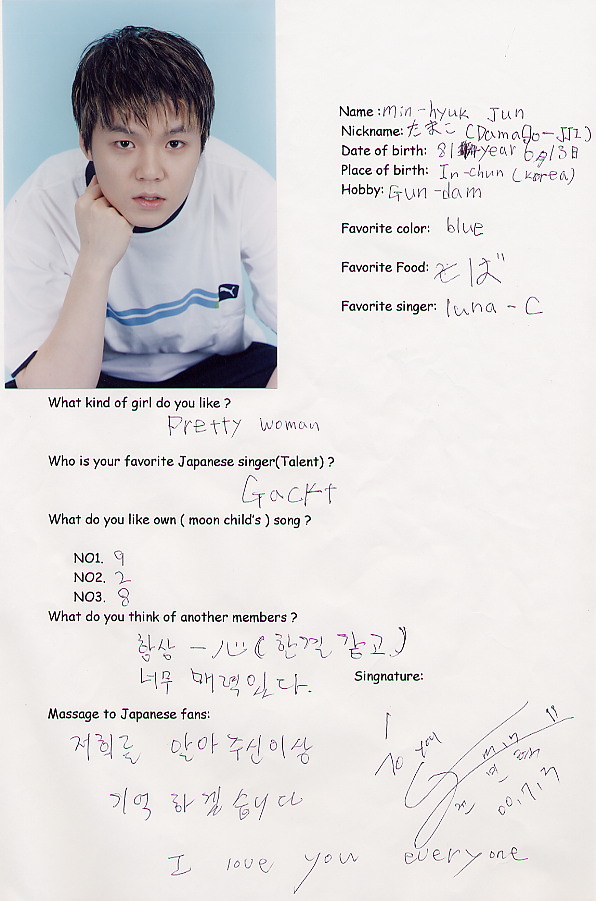 Name : min-hyuk Jun
Nickname: たまご (Damago-JJI)
Date of birth: 81 year 6月13日
Place of birth: In-chun (Korea)
Hobby: Gun-dam
Favorite color: blue
Favorite Food: そば
Favorite singer: luna - C
What kind of girl do you like ?
Pretty woman
Who is your favorite Japanese singer(Talent) ?
Gackt
What do you like own ( moon child's ) song ?
NO1. 9
NO2. 2
NO3. 8
What do you think of another members ?
항상 一心 (한결 같고)
너무 매력있다.
Singnature:
Massage to Japanese fans:
저희를 알아주신이상
기억 하겠습니다
To you
00.7.13
I love you everyone